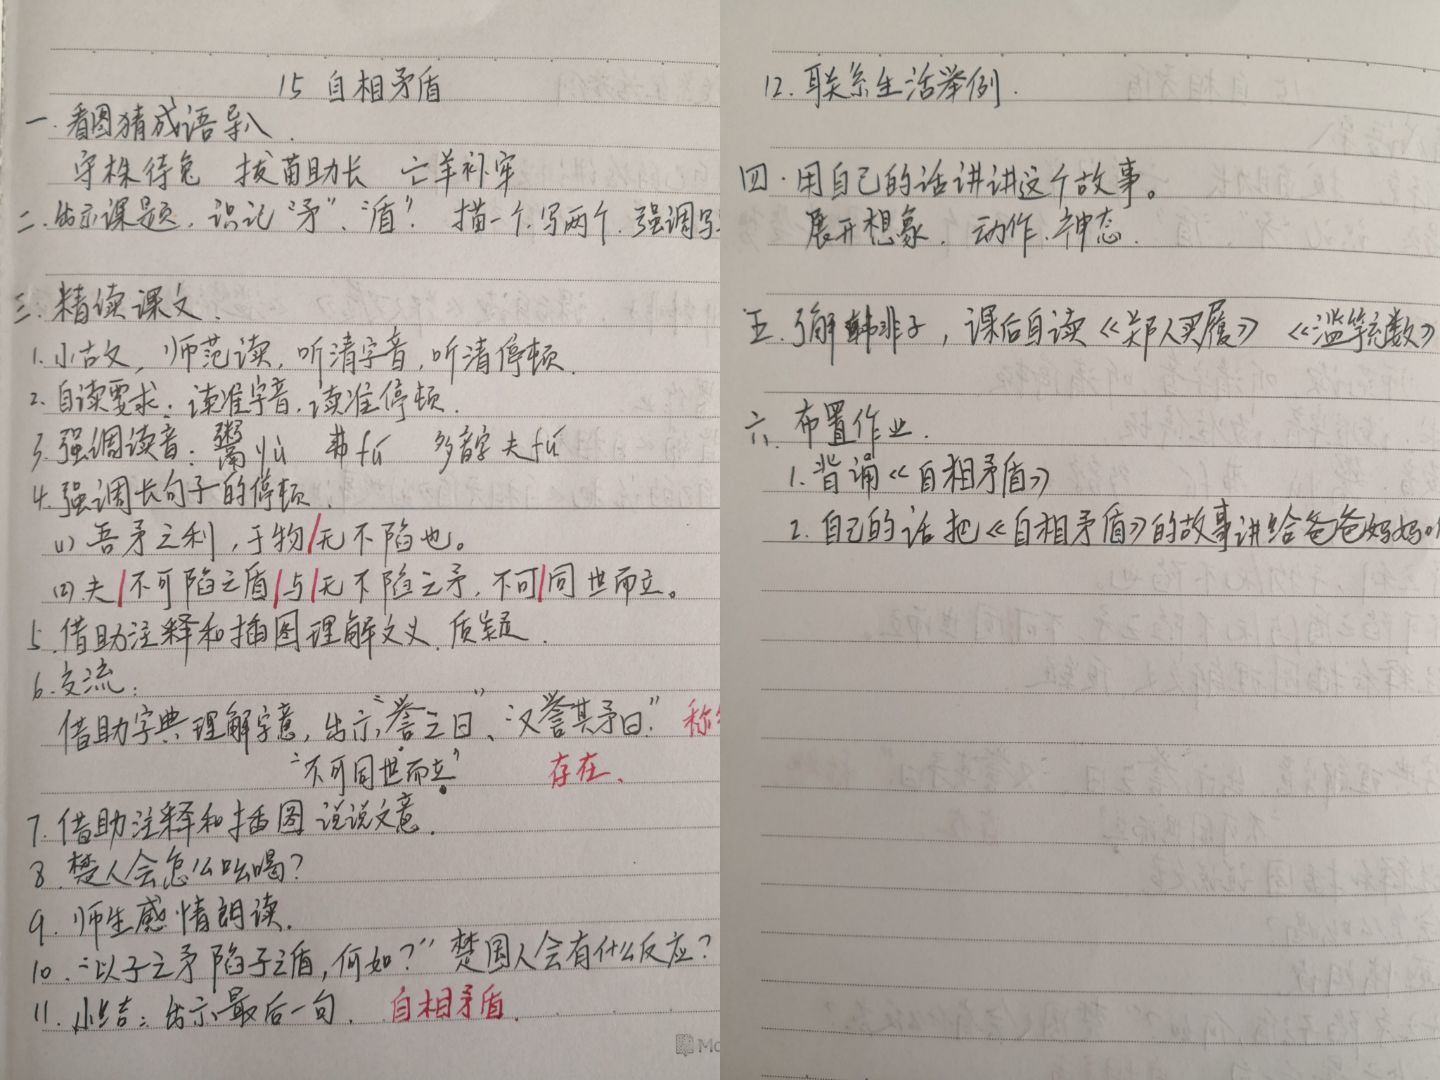 15 自相矛盾
一.看图猜成语导入.
守株待兔 拔苗助长 亡羊补牢
二.出示课题.识记“矛”、“盾”. 描一个.写两个.强调写
三.精读课文.
1.小古文,师范读,听清字音,听清停顿.
2.自读要求:读准字音,读准停顿.
3.强调读音:鬻yù 弗fú 多音字夫fú
4.强调长句子的停顿.
(1)吾矛之利,于物/无不陷也。
(2)夫/不可陷之盾/与/无不陷之矛,不可/同世而立。
5.借助注释和插图理解文义.质疑.
6.交流:
借助字典理解字意,出示“誉之曰”、“又誉其矛曰.” 称
“不可同世而立” 存在.
7.借助注释和插图说说文意.
8.楚人会怎么吆喝?
9.师生感情朗读.
10.“以子之矛陷子之盾,何如?”楚国人会有什么反应?
11.小结:出示最后一句. 自相矛盾.
12.联系生活举例.
四.用自己的话讲讲这个故事。
展开想象.动作、神态.
五.了解韩非子,课后自读《郑人买履》《滥竽充数》
六.布置作业.
1.背诵《自相矛盾》
2.自己的话把《自相矛盾》的故事讲给爸爸妈妈